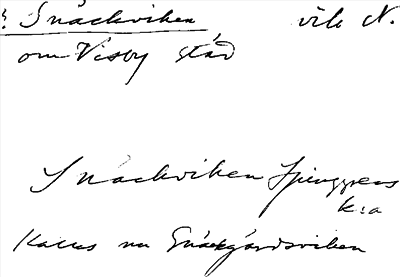 Snäckviken vik N.
om Visby stad
Snäckviken
k:a
Kallas nu Snäckgärdsviken